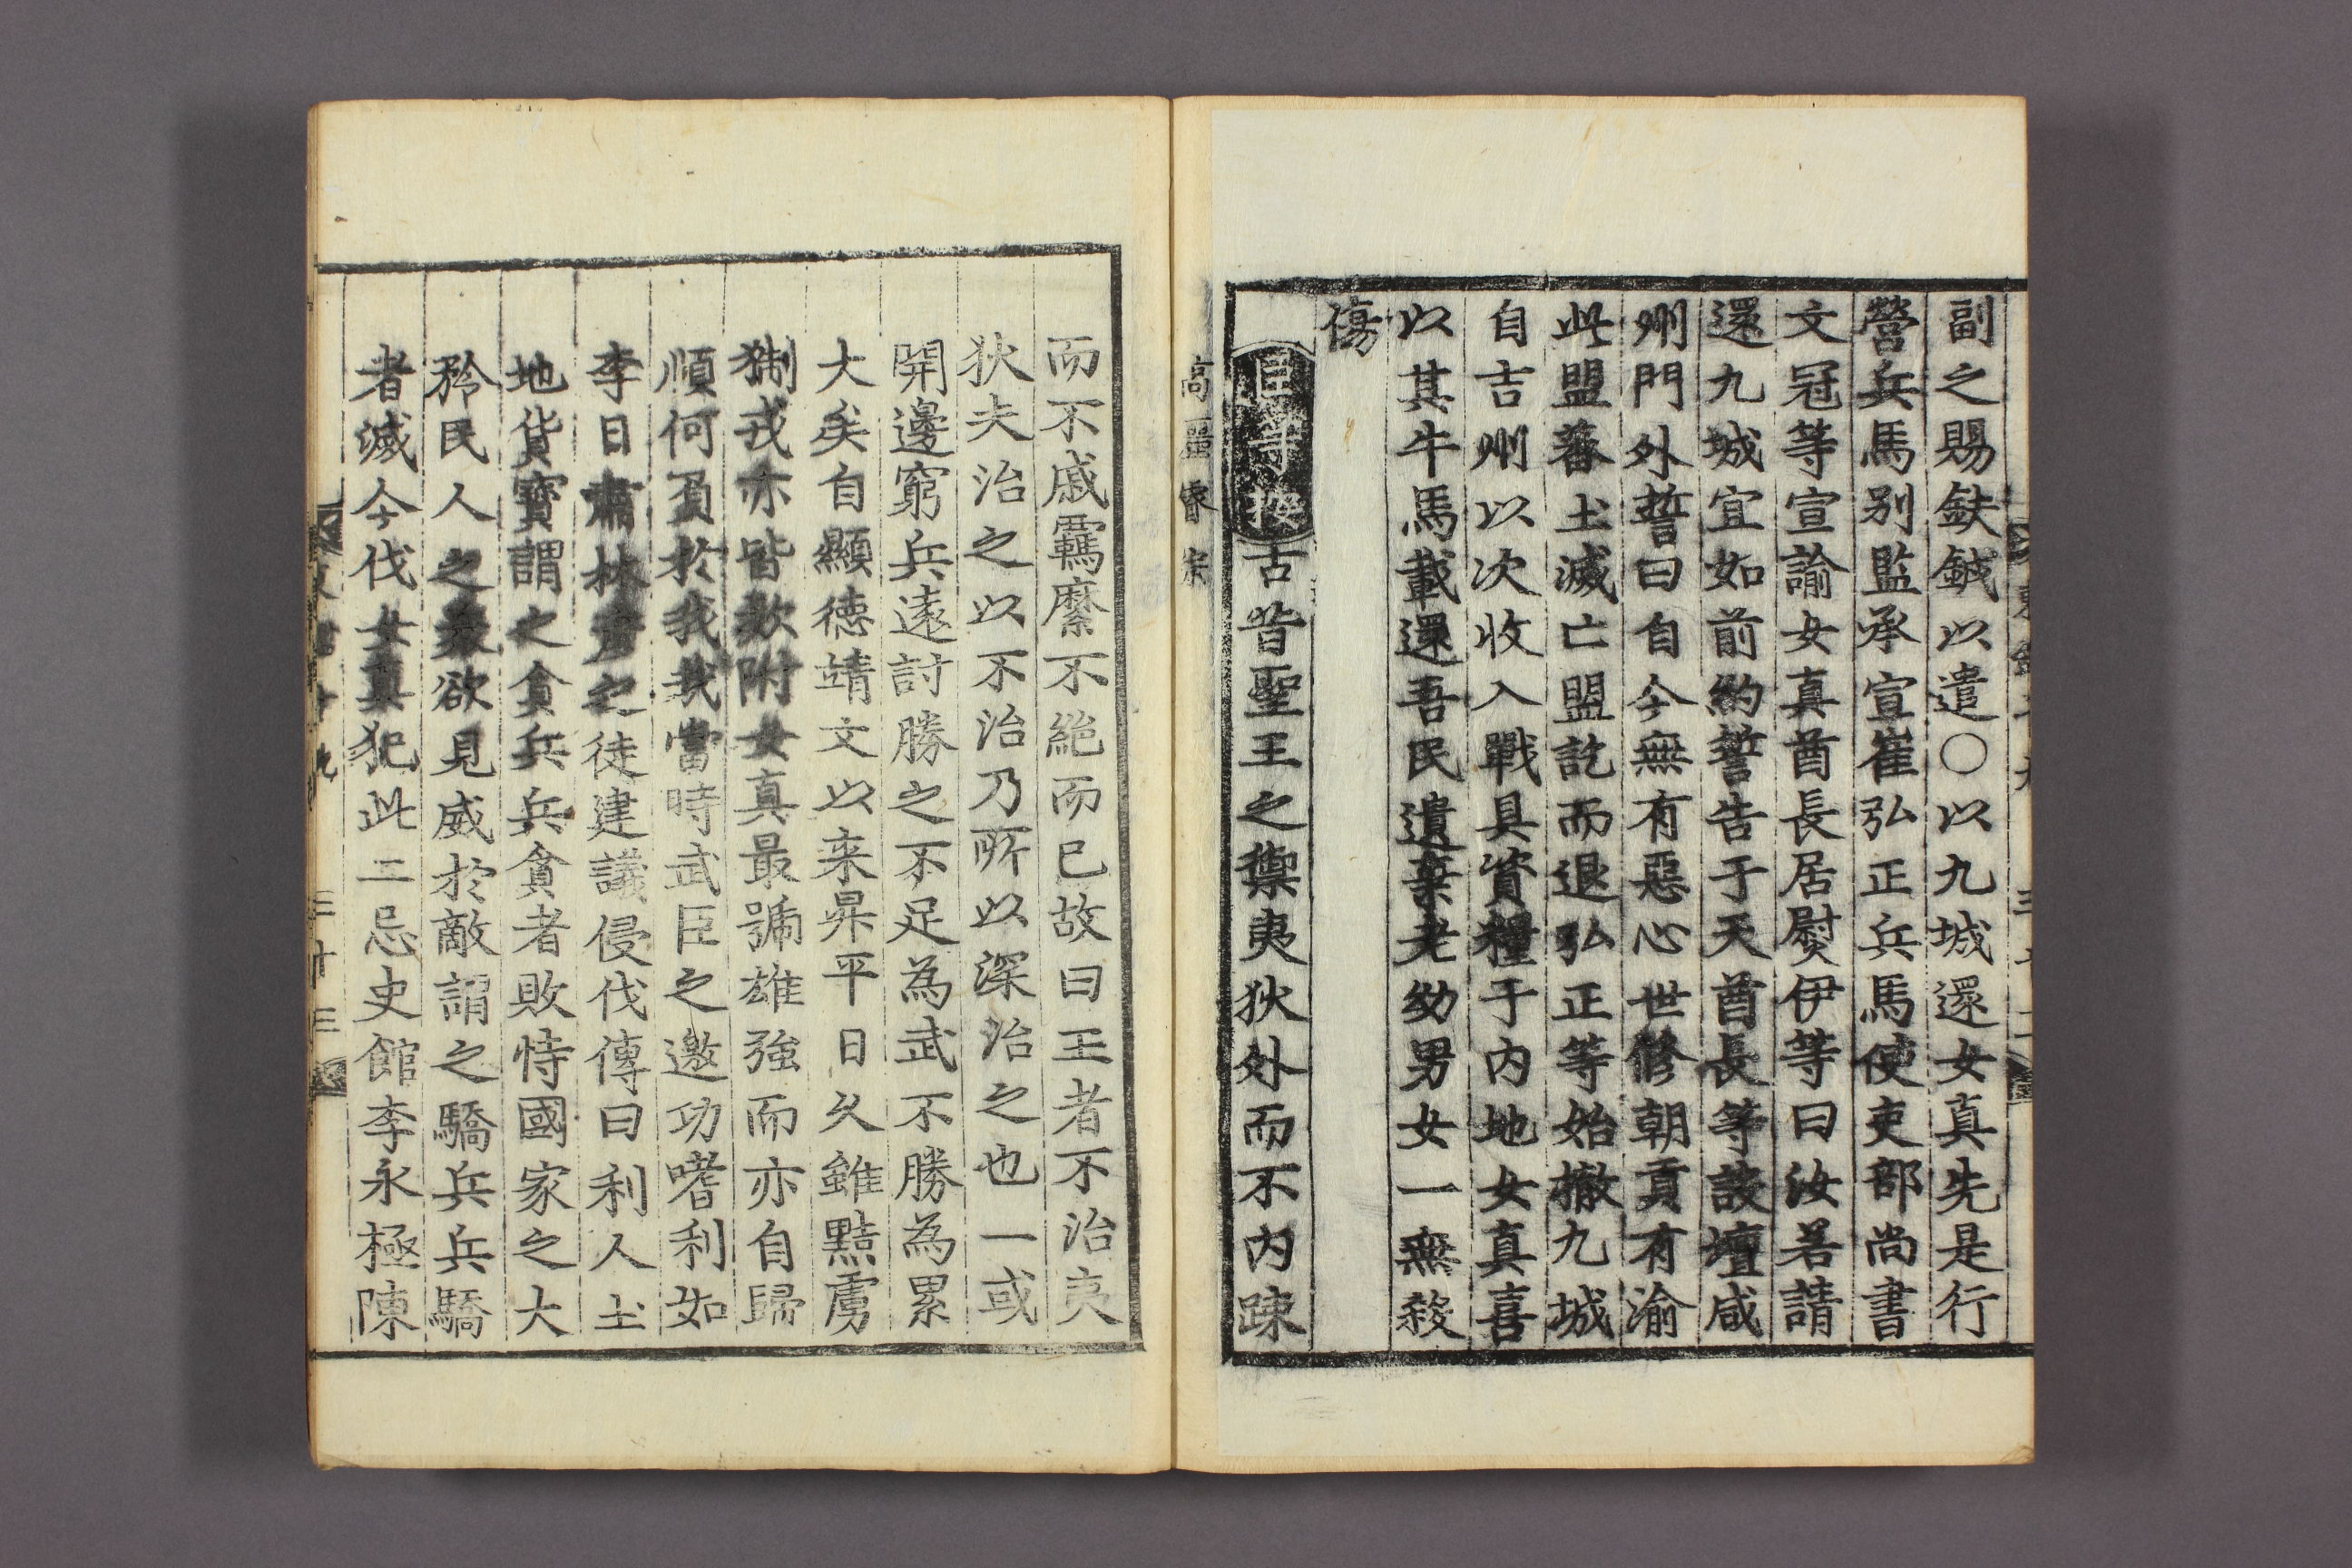 副之賜鈇鉞以遣〇以九城還女真先是行
營兵馬别監承宣崔弘正兵馬使吏部尚書
文冠等宣諭女真酋長居熨伊等曰汝若請
還九城宜如前約誓告于天酋長等設壇咸
州門外誓曰自今無有惡心世修朝貢有渝
此盟蕃土滅亡盟訖而退弘正等始撤九城
自吉州以次收入戰具資糧于内地女真喜
以其牛馬載還吾民遺棄老幼男女一無殺
傷
古昔聖王之禦夷狄外而不内疎
高麗睿宗
而不戚覊縻不絶而已故曰王者不治夷
狄夫治之以不治乃所以深治之也一或
開邊窮兵遠討勝之不足為武不勝為累
大矣自顯德靖文以来昇平日久雖黠虜
猘戎亦皆欵附女真最號雄強而亦自歸
順何負於我哉當時武臣之邀功嗜利如
李日肅林彦之徒建議侵伐傳曰利人土
地貨寶謂之貪兵兵貪者敗恃國家之大
矜民人之衆欲見威於敵謂之驕兵兵驕
者滅今伐女真犯此二忌史館李永極陳
三十三